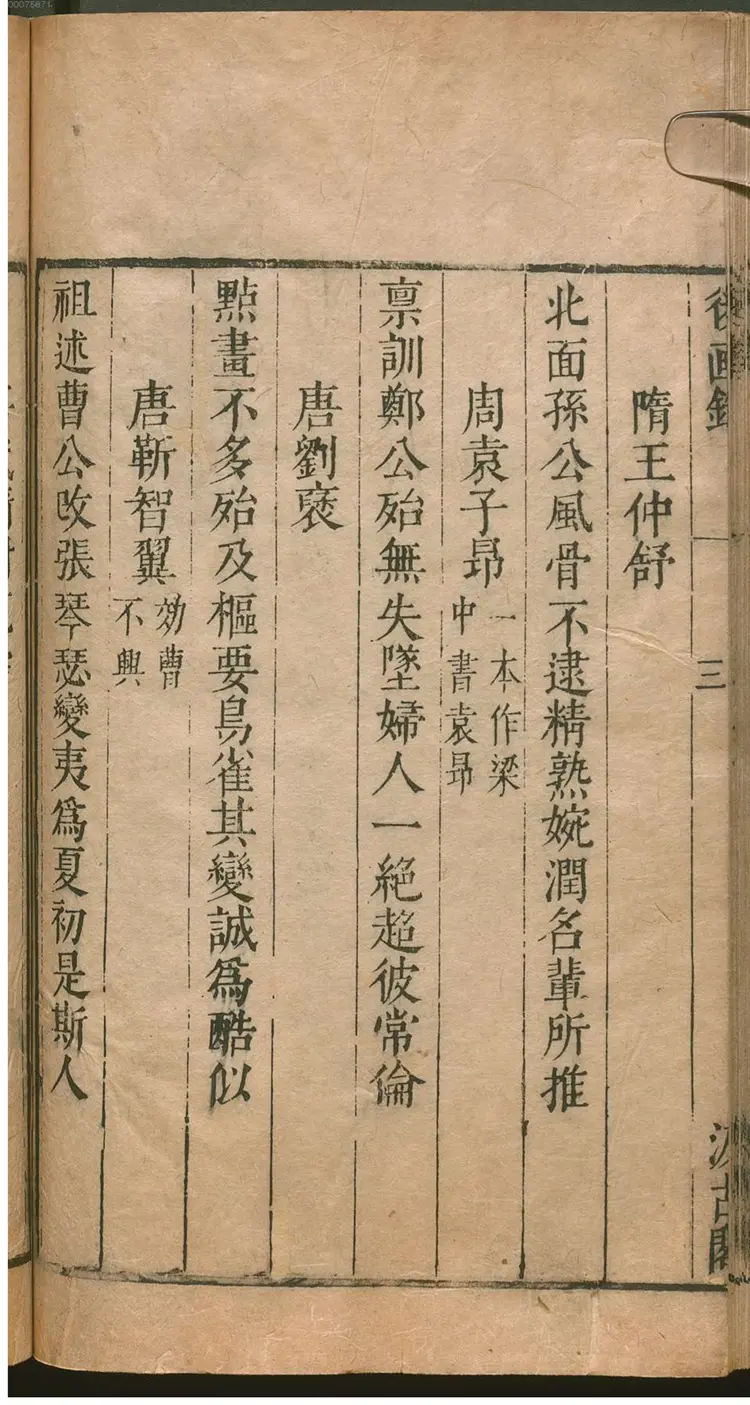 後画錄
三
汲古閣
隋王仲舒
北面孫公風骨不逮精熟婉潤名輩所推
周袁子昻
一本作梁
中書袁昻
禀訓鄭公殆無失墜婦人一絕超彼常倫
唐劉褒
點畫不多殆及樞要鳥雀其變誠爲酷似
唐靳智翼
効曹
不興
祖述曹公改張琴瑟變夷爲夏初是斯人